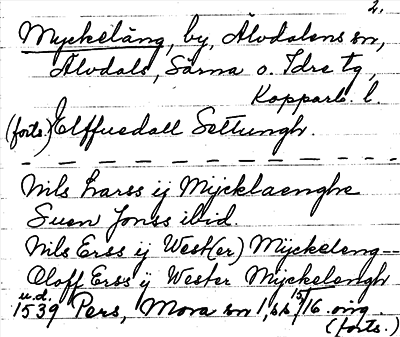 2.
Myckeläng, by, Älvdalens sn,
Älvdals, Särna o. Idre tg,
Kopparb. l.
(forts.) Elffuedall Settungh.
Nils Larss ij Mijcklaenghe
Suen Jonss ibid.
Nils Erss ij West(er) Mijckeleng--
Oloff Erss ij Wester Mijckelengh
u.d.
1539 Pers, Mora sn 1, s. 15/16. orig.
(forts.)